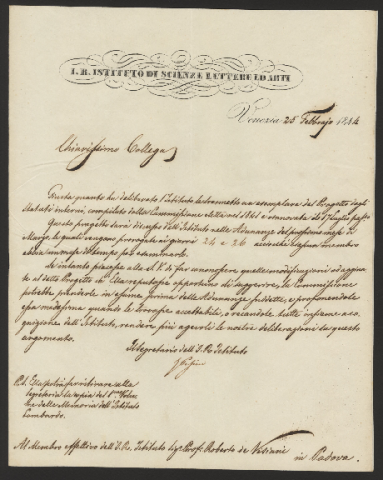 I. R. ISTITUTO DI SCIENZE LETTERE ED ARTI
Venezia 25 Febbrajo 1844
Chiarissimo Collega
Giusta quanto ha deliberato l'Istituto le trasmetto un esemplare del Progetto degli
Statuti interni, compilato dalla Commissione eletta nel 1841 e rinnovata
Questo progetto sarà discusso dall'Istituto nelle Adunanze del prossimo mese di
Marzo, le quali vengono prorogate ai giorni 24 e 26 acciochè ciascun membro
abbia innanzi il tempo per esaminarlo.
Se intanto piacesse alla S. V. di far conoscere quelle modificazioni od aggiun-
te al detto Progetto ch'Ella reputasse opportuno di suggerire, la Commissione
potrebbe prenderle in esame prima delle Adunanze suddette, e profittandole
essa medesima quando le trovasse accettabili, o recandole tutte insieme a co-
gnizione dell'Istituto, rendere più agevoli le nostre deliberazioni su questo
argomento.
Il Segretario dell'I. R. Istituto
P.S. Ella potrà far ritirare alla
Segreteria la copia del Volu-
me delle Memorie dell'Istituto
Lombardo.
Al Membro effettivo dell'I. R. Istituto Sig. Prof. Roberto de Visiani
in Padova.